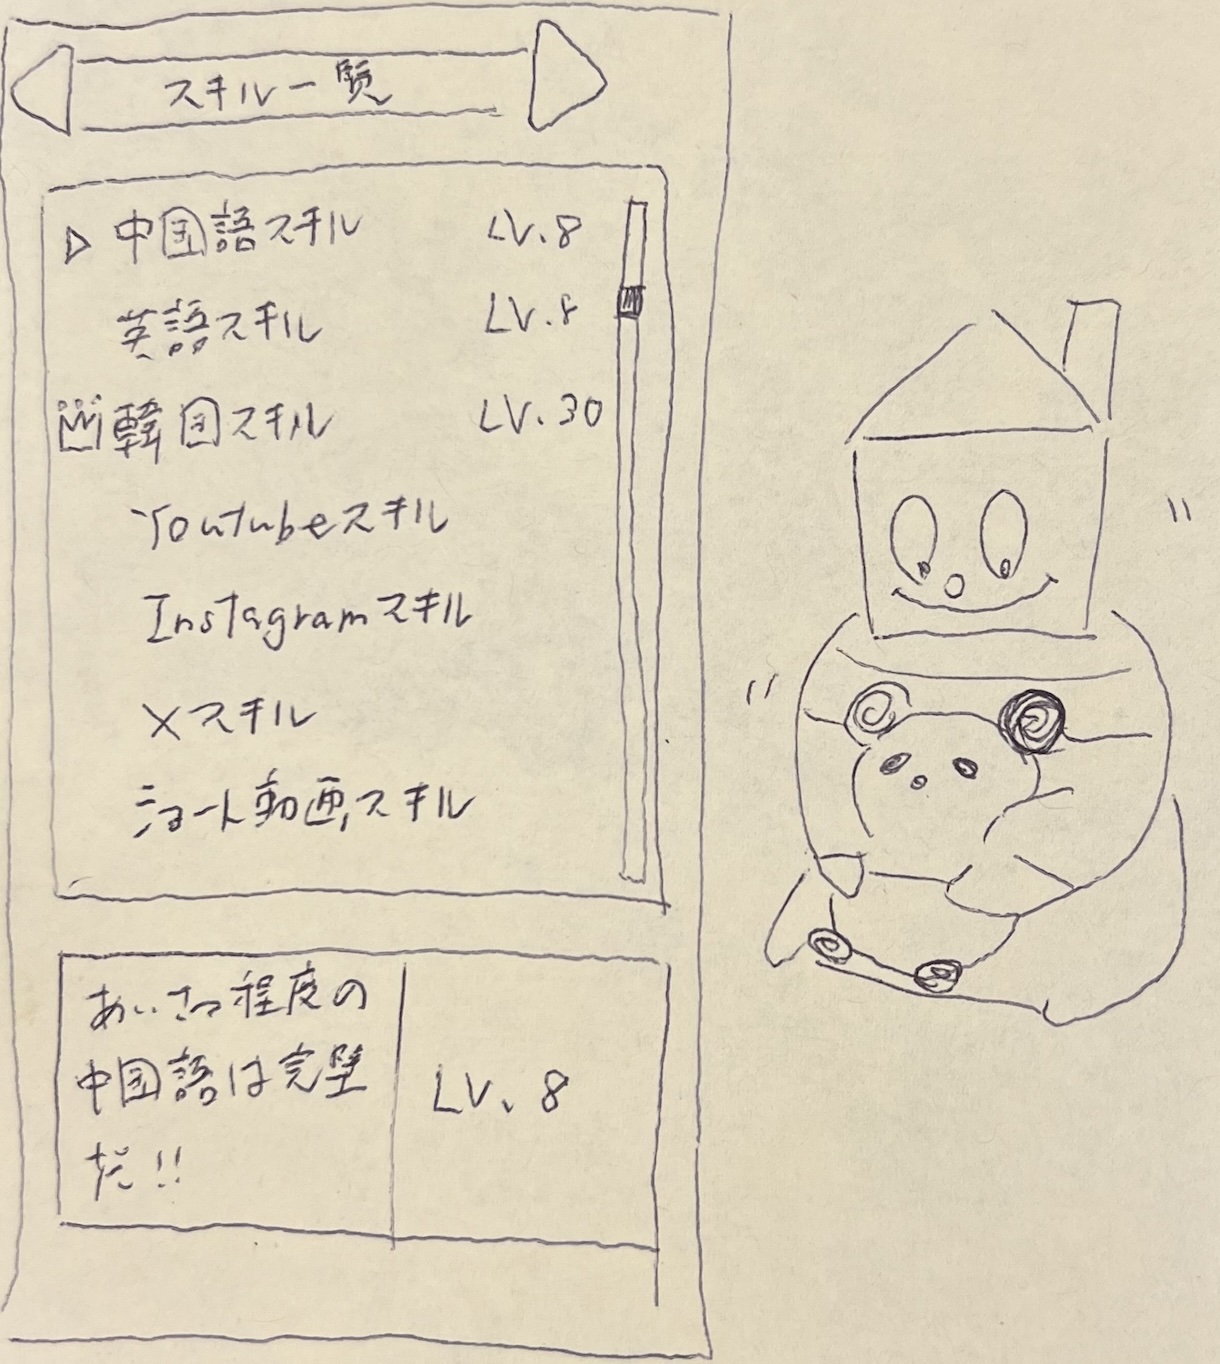 スキル一覧
中国語スキル LV.8
英語スキル LV.8
韓国スキル LV.30
Youtubeスキル
Instagramスキル
Xスキル
ショート動画スキル
あいさつ程度の
中国語は完璧
だ!!
LV.8